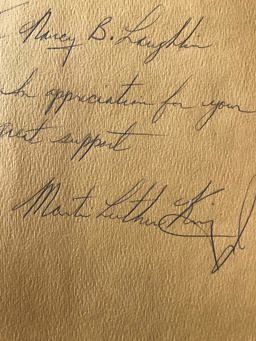 Nancy B. Laughlin
appriciation for your
great support
Martin Luther King Jr